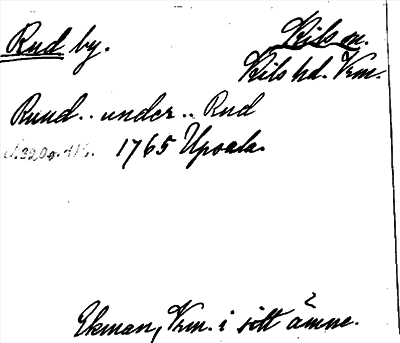 Rud by.
Kils sn.
Kils hd. Vrm.
Ruud.. under.. Rud
1765 Upsala.
Ekman, Vrm. i sitt ämne.